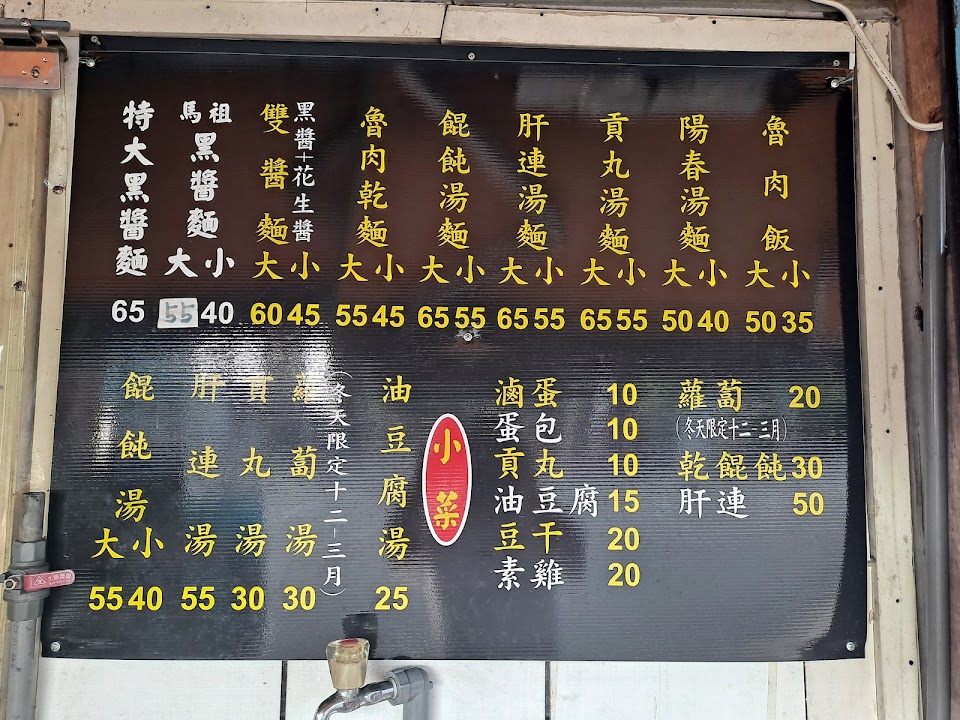 魯肉飯 大小 50 35
陽春湯麵 大小 50 40
貢丸湯麵 大小 65 55
肝連湯麵 大小 65 55
餛飩湯麵 大小 65 55
魯肉乾麵 大小 55 45
雙醬麵 黑醬+花生醬 大小 60 45
馬祖黑醬麵 大小 55 40
特大黑醬麵 65
餛飩湯 大小 55 40
肝連湯 55
貢丸湯 30
蘿蔔湯 30
(冬天限定十二-三月)
油豆腐湯 25
小菜
滷蛋 10
蛋包 10
貢丸 10
油豆腐 15
豆干 20
素雞 20
蘿蔔 20
(冬天限定十二-三月)
乾餛飩 30
肝連 50